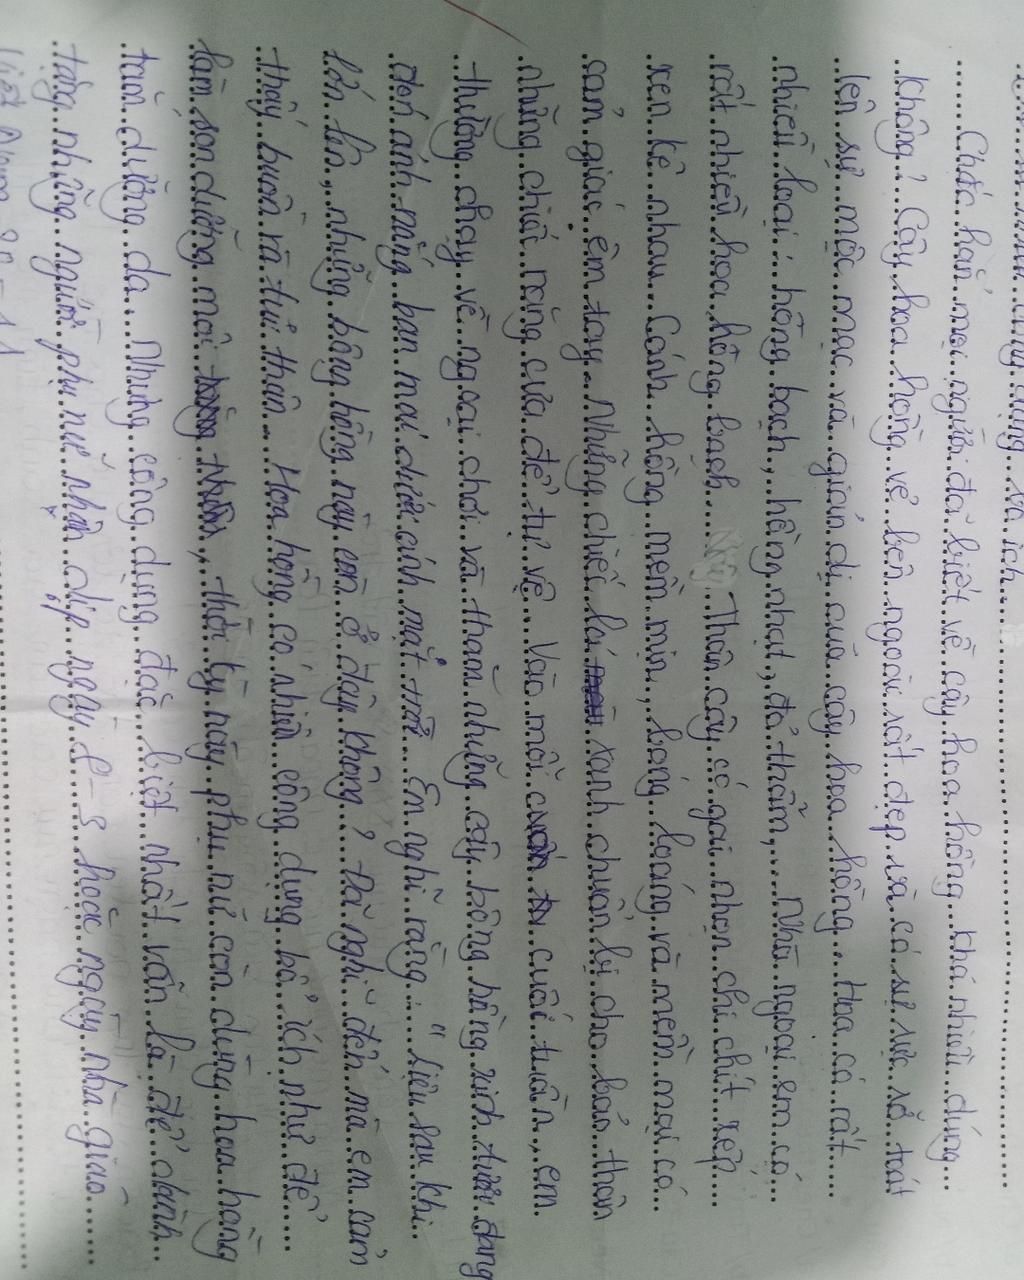 cũng ích
Chắc hẳn mọi người đã biết về cây hoa hồng khá nhiều đúng
không? Cây hoa hồng vẻ bên ngoài rất đẹp và có sự rực rỡ toát
lên sự mộc mạc và giản dị của cây hoa hồng. Hoa có rất
nhiều loại: hồng bạch, hồng nhạt, đỏ thẫm,... Nhà ngoại em có
rất nhiều hoa hồng bạch. Thân cây có gai nhọn chi chít xếp
xen kẽ nhau. Cánh hồng mềm mịn, bóng loáng và mềm mại có
cảm giác êm tay. Những chiếc lá xanh chuẩn bị cho bảo thân
những chiếc răng cưa để tự vệ. Vào mỗi cuối tuần, em
thường chạy về ngoại chơi và thăm những cây bông hồng xinh tươi đang
đón ánh nắng ban mai dưới ánh mặt trời. Em nghĩ rằng: " liệu sau khi
lớn lên, những bông hồng này còn ở đây không? Đã nghĩ đến mà em cảm
thấy buồn và tủi thân. Hoa hồng có nhiều công dụng bổ ích như để
làm son dưỡng môi, thời kỳ này phụ nữ còn dùng hoa hồng
tắm dưỡng da. Nhưng công dụng đặc biệt nhất vẫn là để dành
tặng những người phụ nữ nhân dịp ngày 8-3 hoặc ngày nhà giáo
Việt Nam 20-11